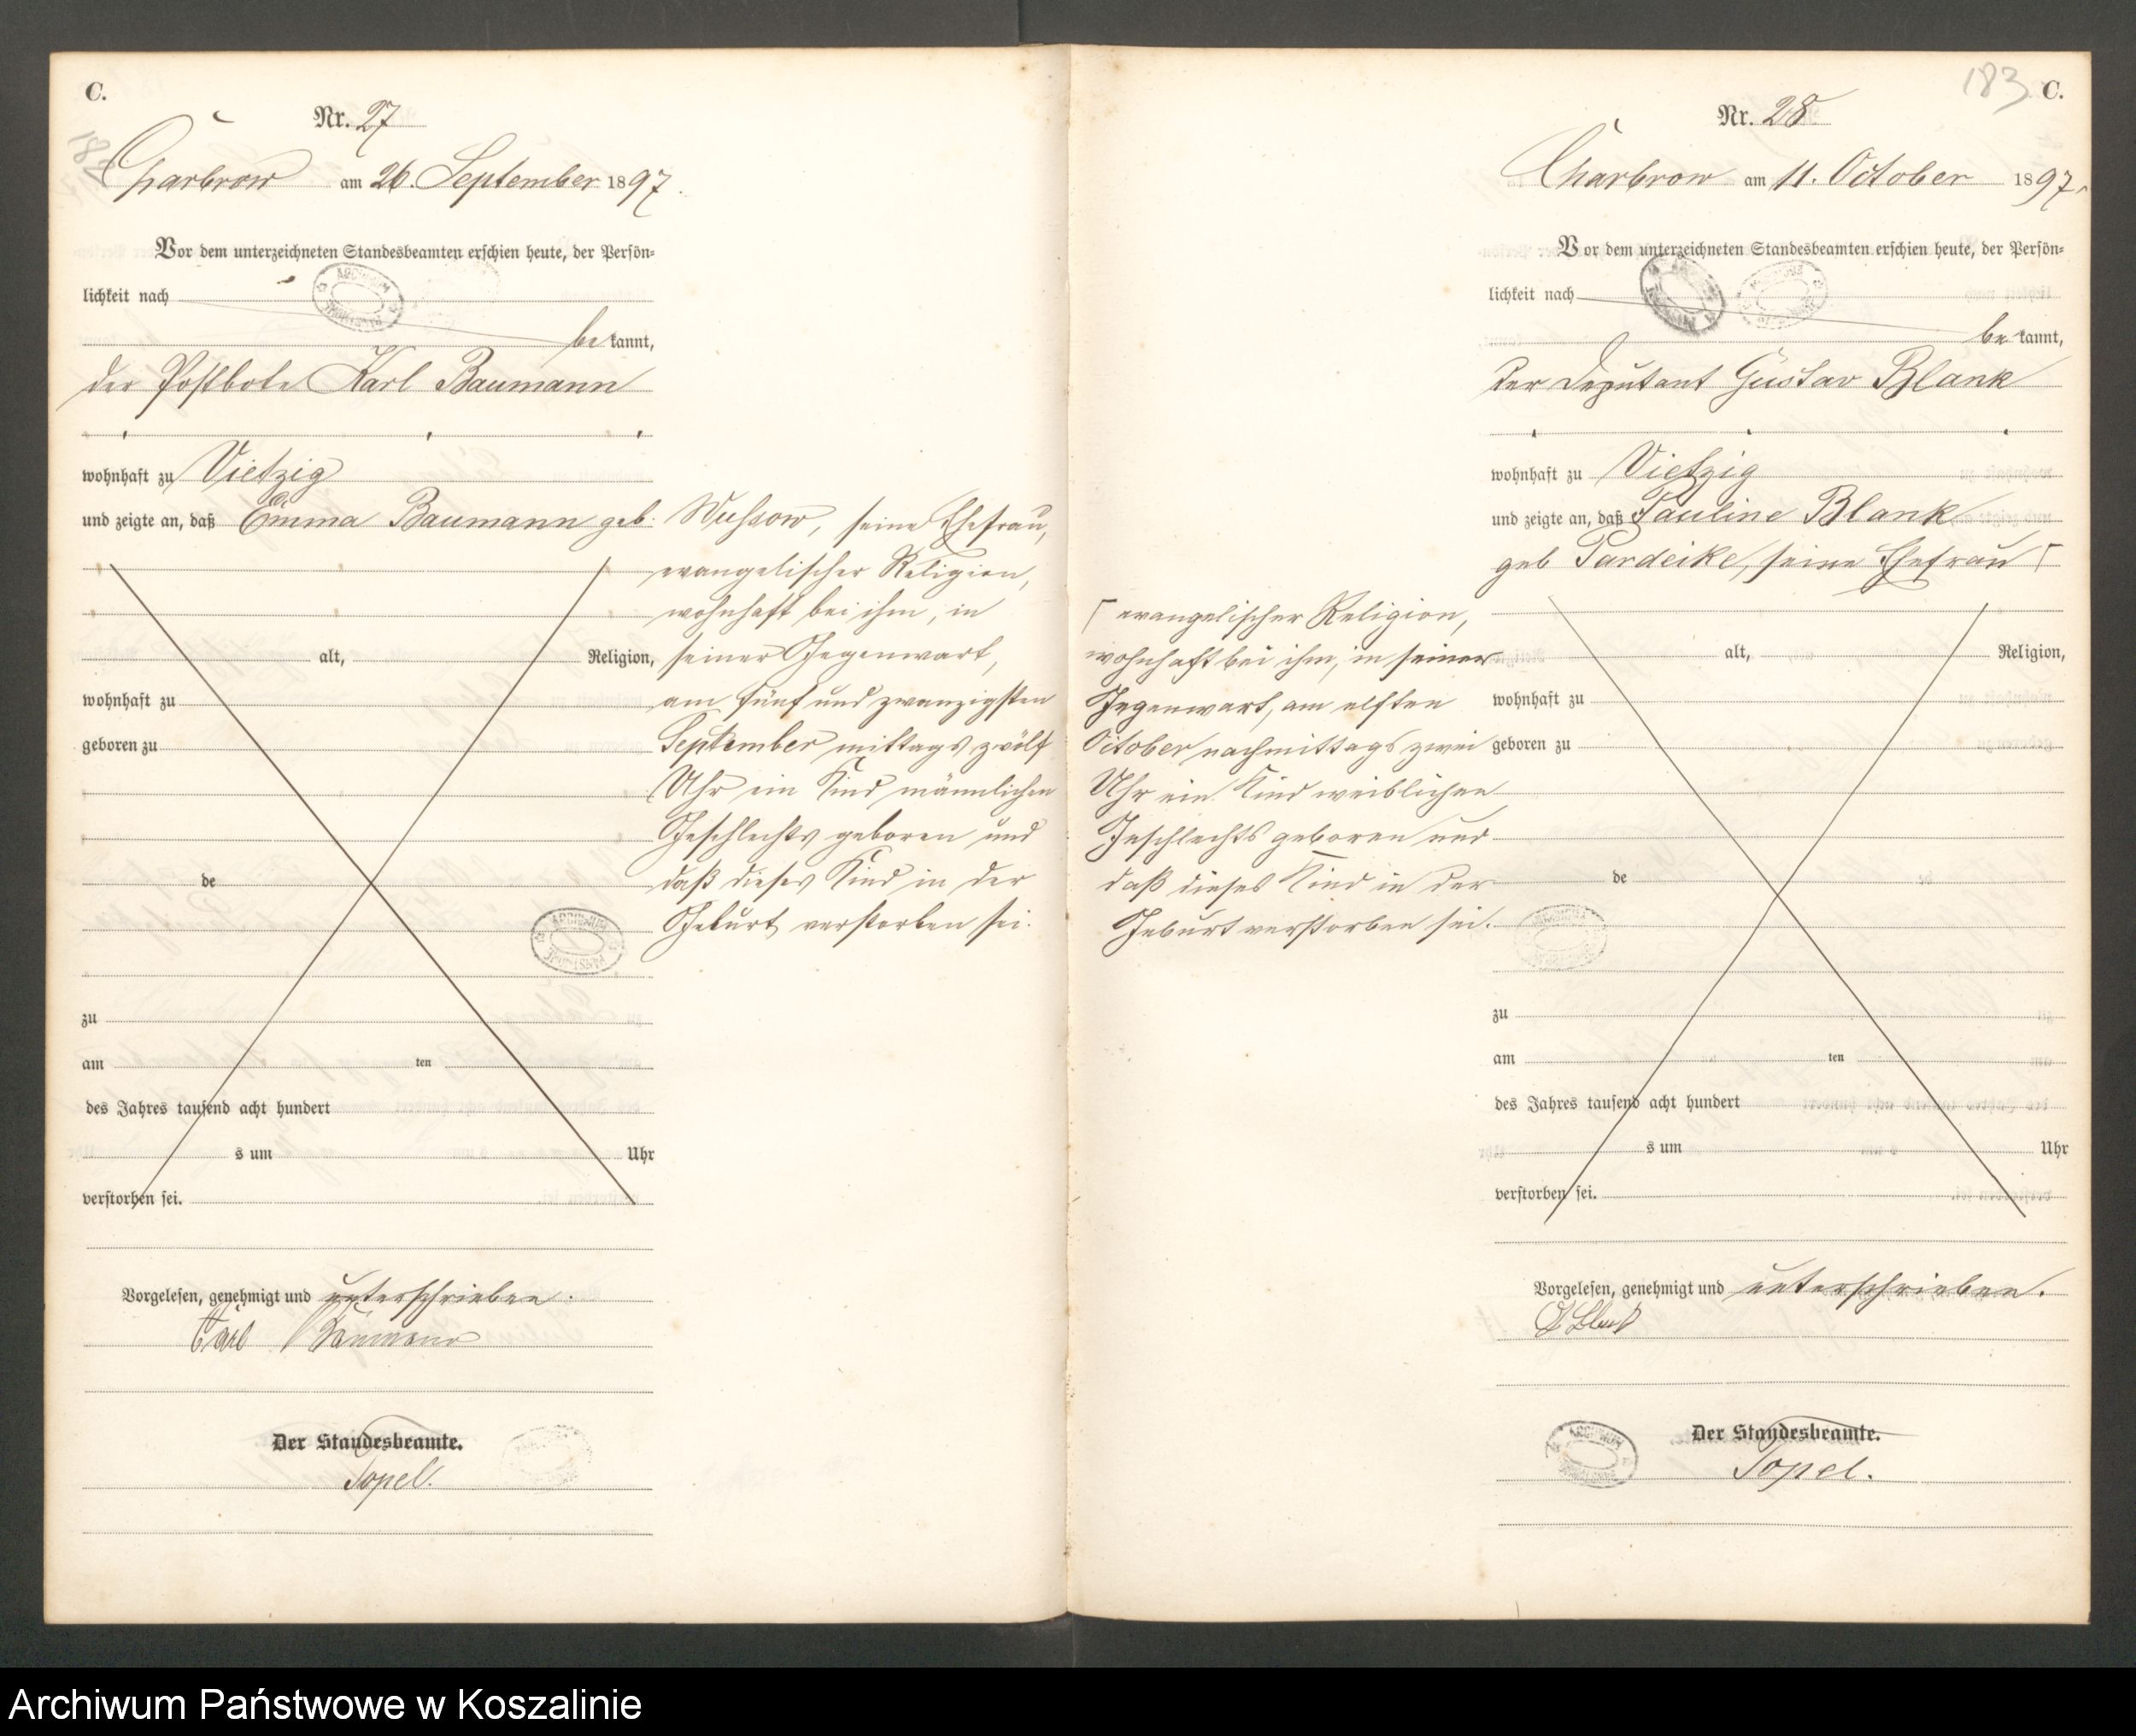 C.
Nr. 27
Charbrow am 26. September 1897.
Vor dem unterzeichneten Standesbeamten erschien heute, der Persön=
lichkeit nach
be kannt,
der Postbote Karl Baumann
wohnhaft zu Vietzig
und zeigte an, daß Emma Baumann geb. Wussow, seine Ehefrau,
evangelischer Religion,
wohnhaft bei ihm, in
alt, Religion, seiner Gegenwart,
wohnhaft zu am fünf und zwanzigsten
geboren zu September mittags zwölf
Uhr ein Kind männlichen
Geschlechts geboren und
de daß dieses Kind in der
Geburt verstorben sei.
zu
am ten
des Jahres tausend acht hundert
s um Uhr
verstorben sei.
Vorgelesen, genehmigt und unterschrieben.
Carl Baumann
Der Standesbeamte.
Topel.
183 C.
Nr. 28
Charbrow am 11. October 1897.
Vor dem unterzeichneten Standesbeamten erschien heute, der Persön=
lichkeit nach
be kannt,
der Deputant Gustav Blank
wohnhaft zu Vietzig
und zeigte an, daß Pauline Blank
geb Pardeike, seine Ehefrau ⌈
⌈ evangelischer Religion,
wohnhaft bei ihm, in seiner alt, Religion,
Gegenwart, am elften wohnhaft zu
October nachmittags zwei geboren zu
Uhr ein Kind weiblichen
Geschlechts geboren und
daß dieses Kind in der de
Geburt verstorben sei.
zu
am ten
des Jahres tausend acht hundert
s um Uhr
verstorben sei.
Vorgelesen, genehmigt und unterschrieben.
G Blank
Der Standesbeamte.
Topel.
Archiwum Państwowe w Koszalinie